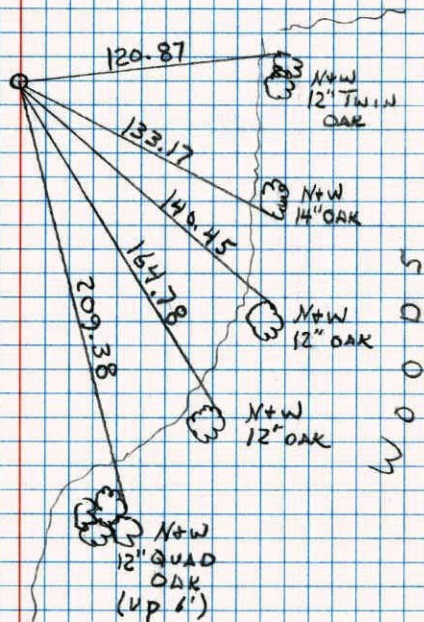 120.87
N+W
12" TWIN
OAK
133.17
N+W
14" OAK
140.45
N+W
12" OAK
164.78
N+W
12" OAK
209.38
N+W
12" QUAD
OAK
(UP 6')
WOODS